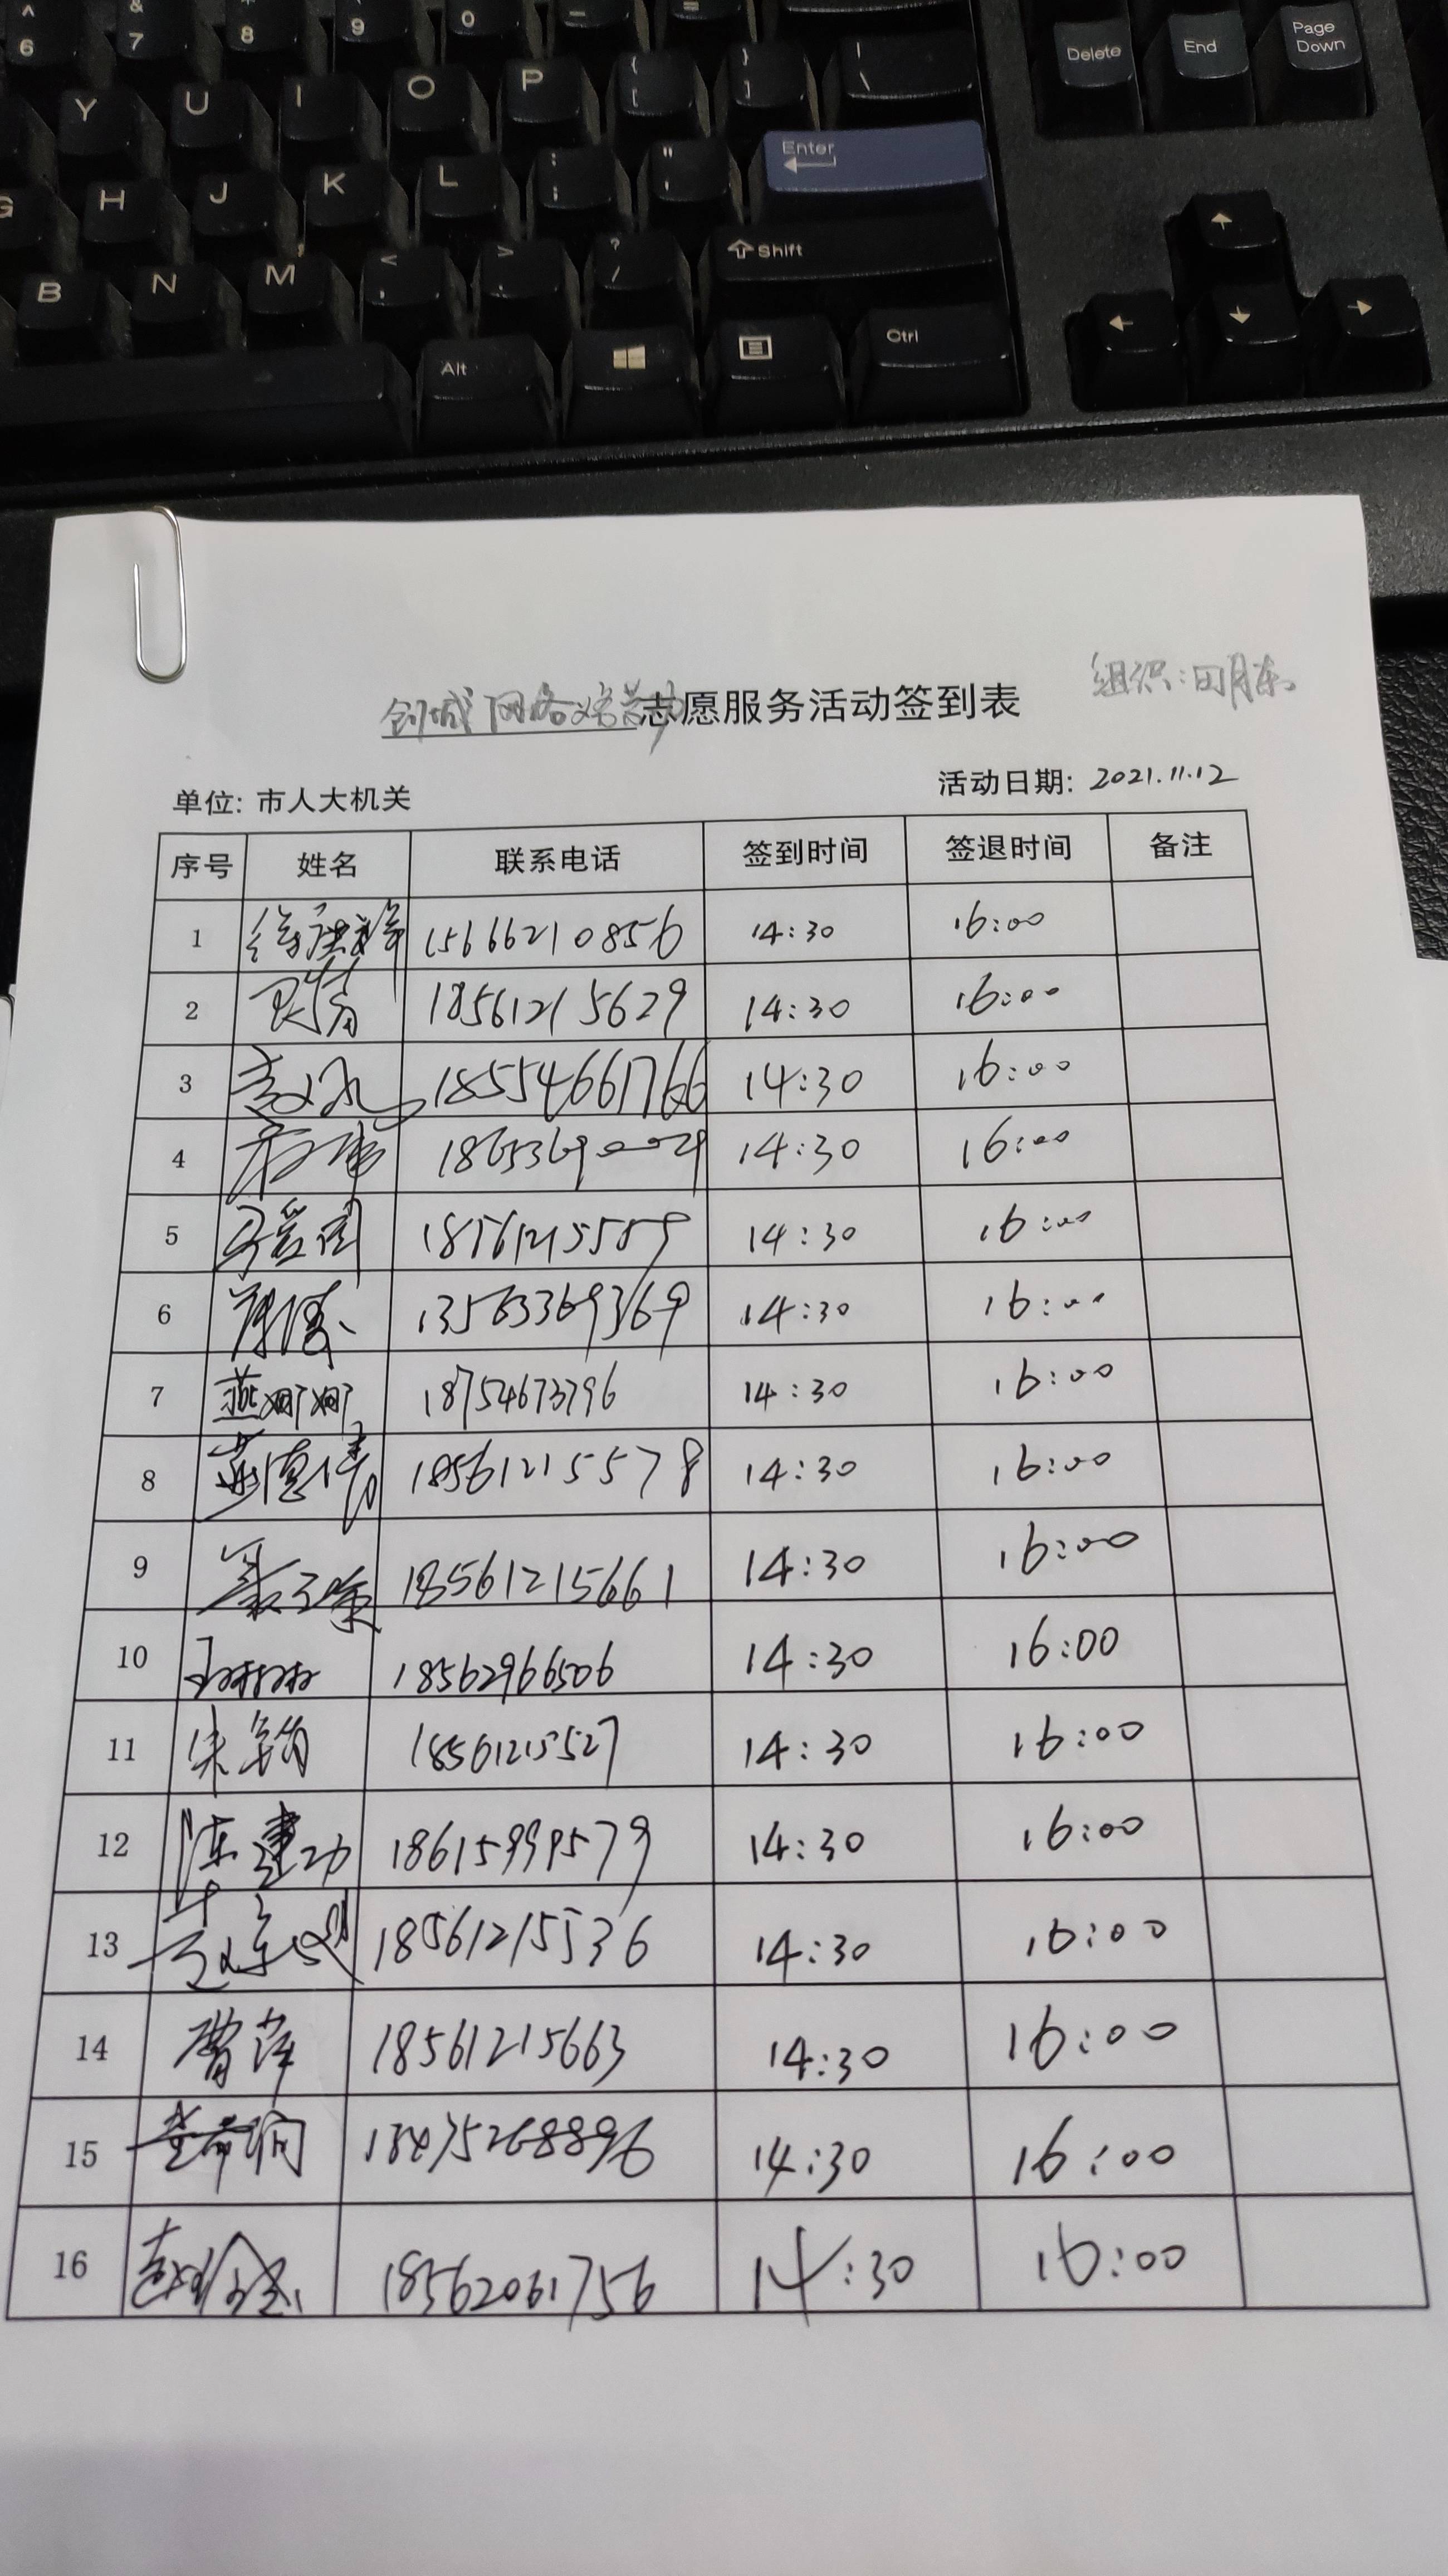 ^ & * ( ) _ +
6 7 8 9 0 - =
Y U I O P { [ } ] | \
Delete End Page Down
G H J K L : ; " ' Enter
B N M < , > . ? / Shift
Alt Ctrl
组织:田月东
创城网络 志愿服务活动签到表
单位: 市人大机关 活动日期: 2021.11.12
序号 姓名 联系电话 签到时间 签退时间 备注
1 15666210856 14:30 16:00
2 18561215629 14:30 16:00
3 18554661766 14:30 16:00
4 18653690029 14:30 16:00
5 18561215559 14:30 16:00
6 13563369369 14:30 16:00
7 燕娜娜 18754673796 14:30 16:00
8 18561215578 14:30 16:00
9 18561215661 14:30 16:00
10 18562966506 14:30 16:00
11 朱韬 18561215527 14:30 16:00
12 陈建功 18615999579 14:30 16:00
13 18561215536 14:30 16:00
14 曹萍 18561215663 14:30 16:00
15 18475268896 14:30 16:00
16 18562061756 14:30 16:00